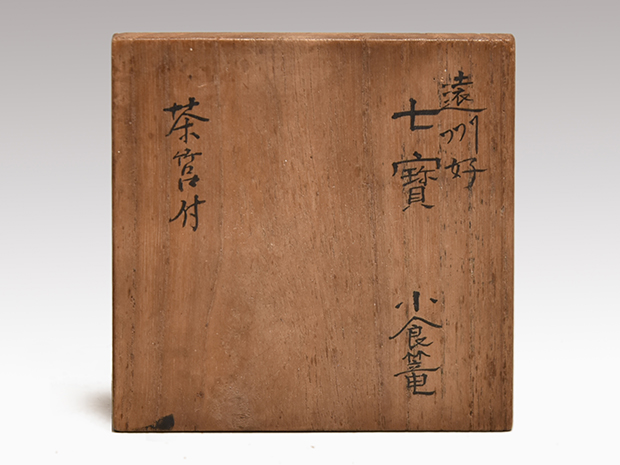 遠州好
七寶 小食篭
茶筥付